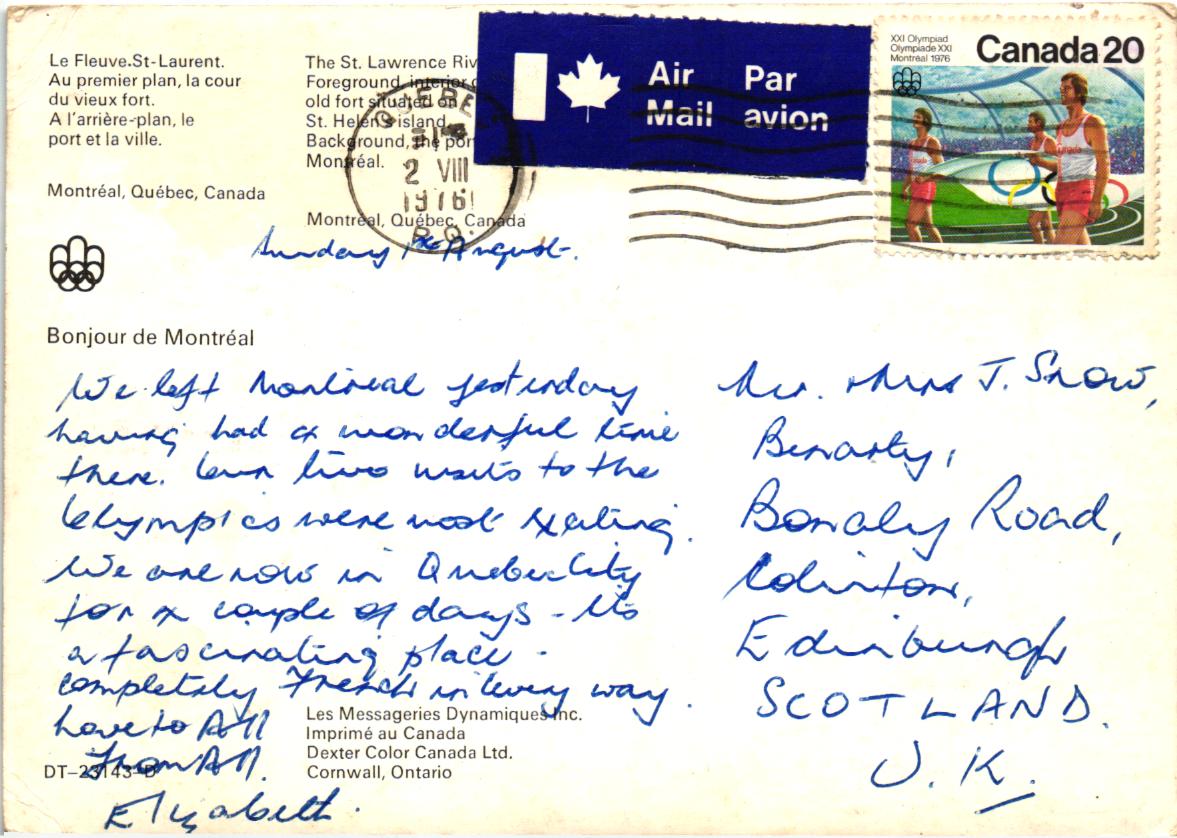 Le Fleuve.St-Laurent.
Au premier plan, la cour
du vieux fort.
A l'arrière-plan, le
port et la ville.
Montréal, Québec, Canada
The St. Lawrence Riv
Foreground, interior o
old fort situated on
St. Helen's island.
Background, the por
Montréal.
Montréal, Québec, Canada
Air Mail
Par avion
XXI Olympiad
Olympiade XXI
Montréal 1976
Canada 20
Canada
QUEBEC
2 VIII
1976
P.Q.
Sunday 1st August.
Bonjour de Montréal
We left Montreal yesterday
having had a wonderful time
there. Our two visits to the
Olympics were most exciting.
We are now in Quebec City
for a couple of days - its
a fascinating place -
completely French in every way.
Love to All
From All.
Elizabeth.
Mr. & Mrs J. Snow,
Benarty,
Bonaly Road,
Colinton,
Edinburgh
SCOTLAND.
U.K.
Les Messageries Dynamiques Inc.
Imprimé au Canada
Dexter Color Canada Ltd.
Cornwall, Ontario
DT-23143-D